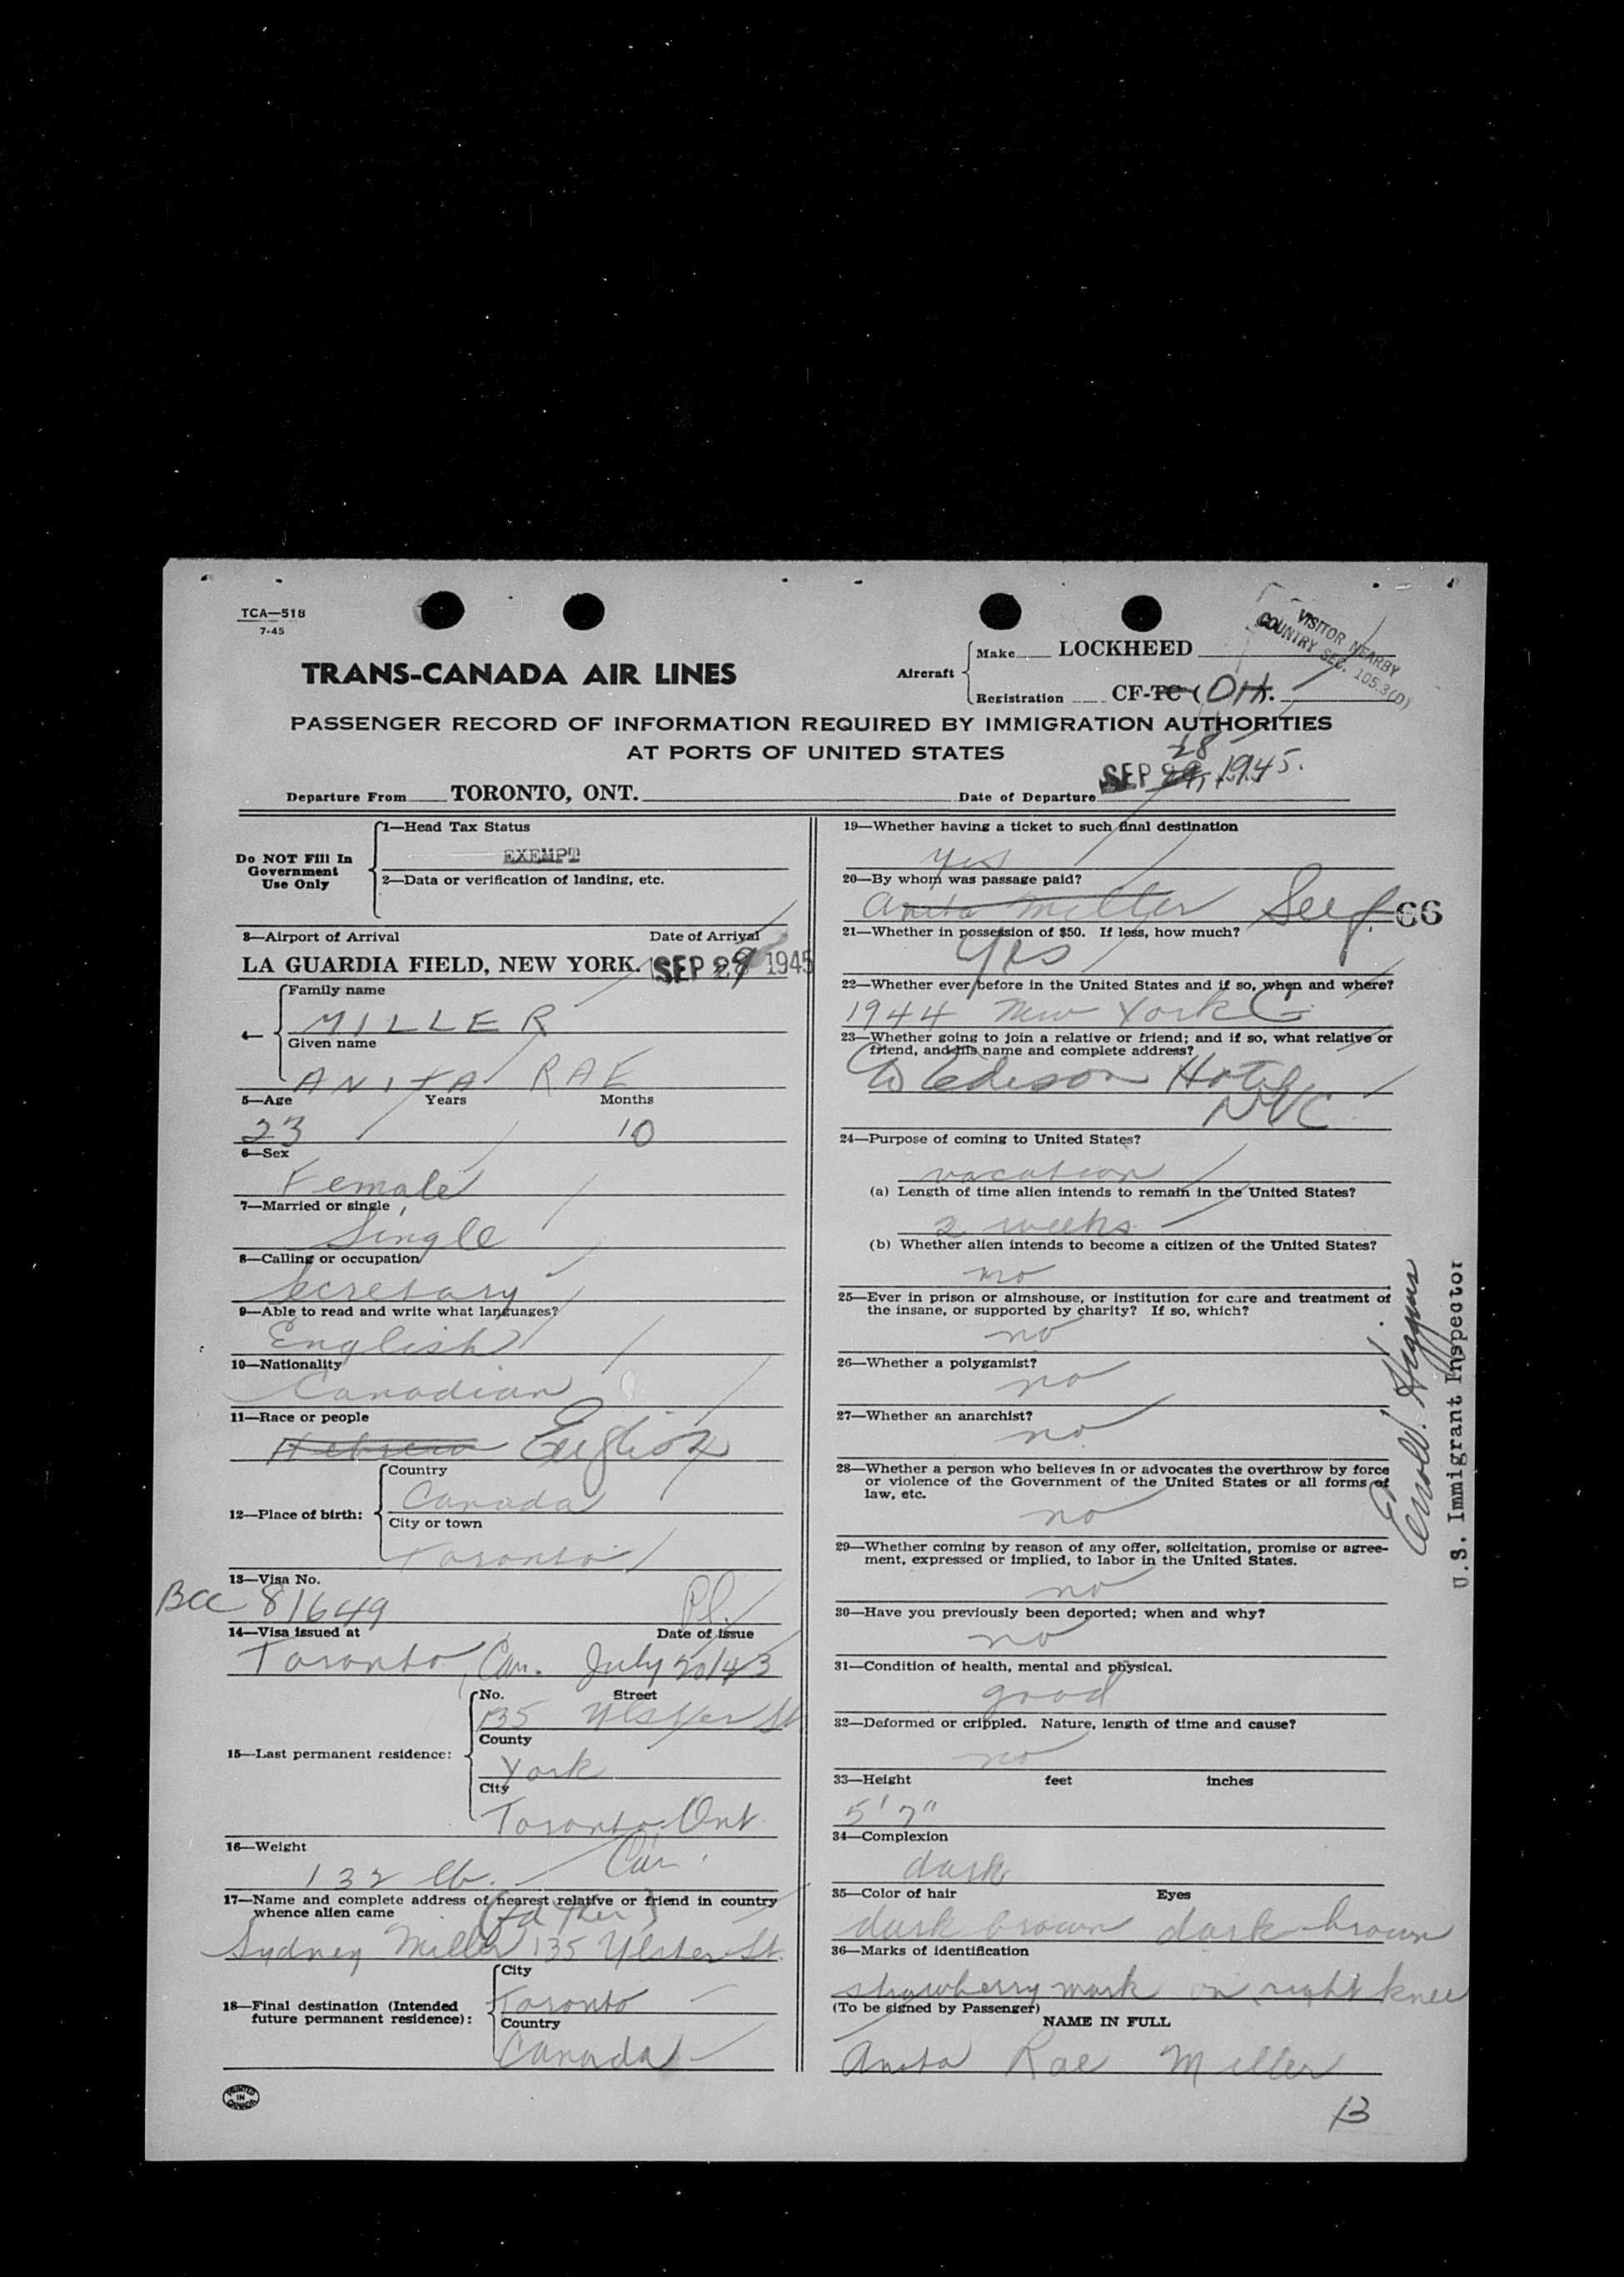 TCA—518
7-45
VISITOR NEARBY
COUNTRY SEC. 105.3(D)
TRANS-CANADA AIR LINES
Aircraft
Make LOCKHEED
Registration CF-TC (OH.
PASSENGER RECORD OF INFORMATION REQUIRED BY IMMIGRATION AUTHORITIES
AT PORTS OF UNITED STATES
28
SEP 1945.
Departure From TORONTO, ONT. Date of Departure
Do NOT Fill In
Government
Use Only
1—Head Tax Status
EXEMPT
2—Data or verification of landing, etc.
3—Airport of Arrival Date of Arrival
LA GUARDIA FIELD, NEW YORK. SEP 1945
Family name
MILLER
Given name
ANITA RAE
5—Age Years Months
23 10
6—Sex
Female
7—Married or single
Single
8—Calling or occupation
Secretary
9—Able to read and write what languages?
English
10—Nationality
Canadian
11—Race or people
Hebrew English
12—Place of birth:
Country
Canada
City or town
Toronto
13—Visa No.
BCC 81649
14—Visa issued at Date of issue
Toronto, Can. July 20/43
15—Last permanent residence:
No. Street
135 Ulster St
County
York
City
Toronto Ont
Can.
16—Weight
132 lb.
17—Name and complete address of nearest relative or friend in country
whence alien came
(Father)
Sydney Miller 135 Ulster St.
18—Final destination (Intended
future permanent residence):
City
Toronto
Country
Canada
PRINTED
IN
CANADA
19—Whether having a ticket to such final destination
yes
20—By whom was passage paid?
Anita Miller Self 66
21—Whether in possession of $50. If less, how much?
Yes
22—Whether ever before in the United States and if so, when and where?
1944 New York
23—Whether going to join a relative or friend; and if so, what relative or
friend, and his name and complete address?
Edison Hotel
NYC
24—Purpose of coming to United States?
vacation
(a) Length of time alien intends to remain in the United States?
2 weeks
(b) Whether alien intends to become a citizen of the United States?
no
25—Ever in prison or almshouse, or institution for care and treatment of
the insane, or supported by charity? If so, which?
no
26—Whether a polygamist?
no
27—Whether an anarchist?
no
28—Whether a person who believes in or advocates the overthrow by force
or violence of the Government of the United States or all forms of
law, etc.
no
29—Whether coming by reason of any offer, solicitation, promise or agree-
ment, expressed or implied, to labor in the United States.
no
30—Have you previously been deported; when and why?
no
31—Condition of health, mental and physical.
good
32—Deformed or crippled. Nature, length of time and cause?
no
33—Height feet inches
5' 7"
34—Complexion
dark
35—Color of hair Eyes
dark brown dark brown
36—Marks of identification
strawberry mark on right knee
(To be signed by Passenger)
NAME IN FULL
Anita Rae Miller
B
Higgins
U.S. Immigrant Inspector